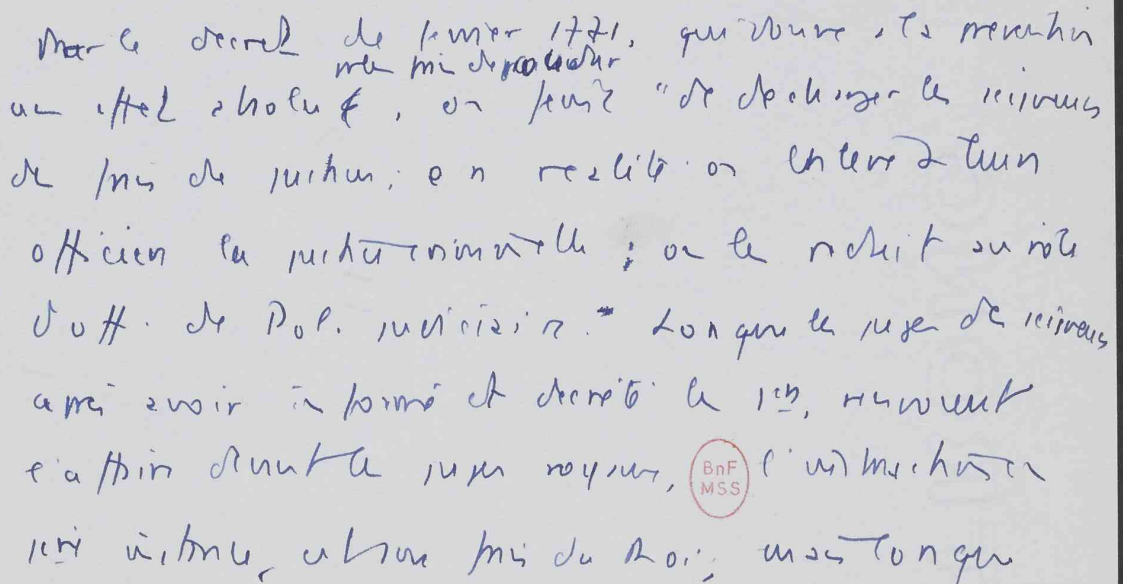 Par le decret de fevrier 1771, qui donne à la prevention
un effet absolu, on feint "de decharger les seigneurs
des frais de justice; en realité on enleve à leurs
officiers la justice criminelle; on les reduit au role
d'off. de Pol. judiciaire." Lorsque les juges des seigneurs
après avoir informé et decrété les 1ers, renvoient
l'affaire devant les juges royaux, l'instruction en
1ere instance, a lieu aux frais du Roi; mais lorsque
BnF
MSS